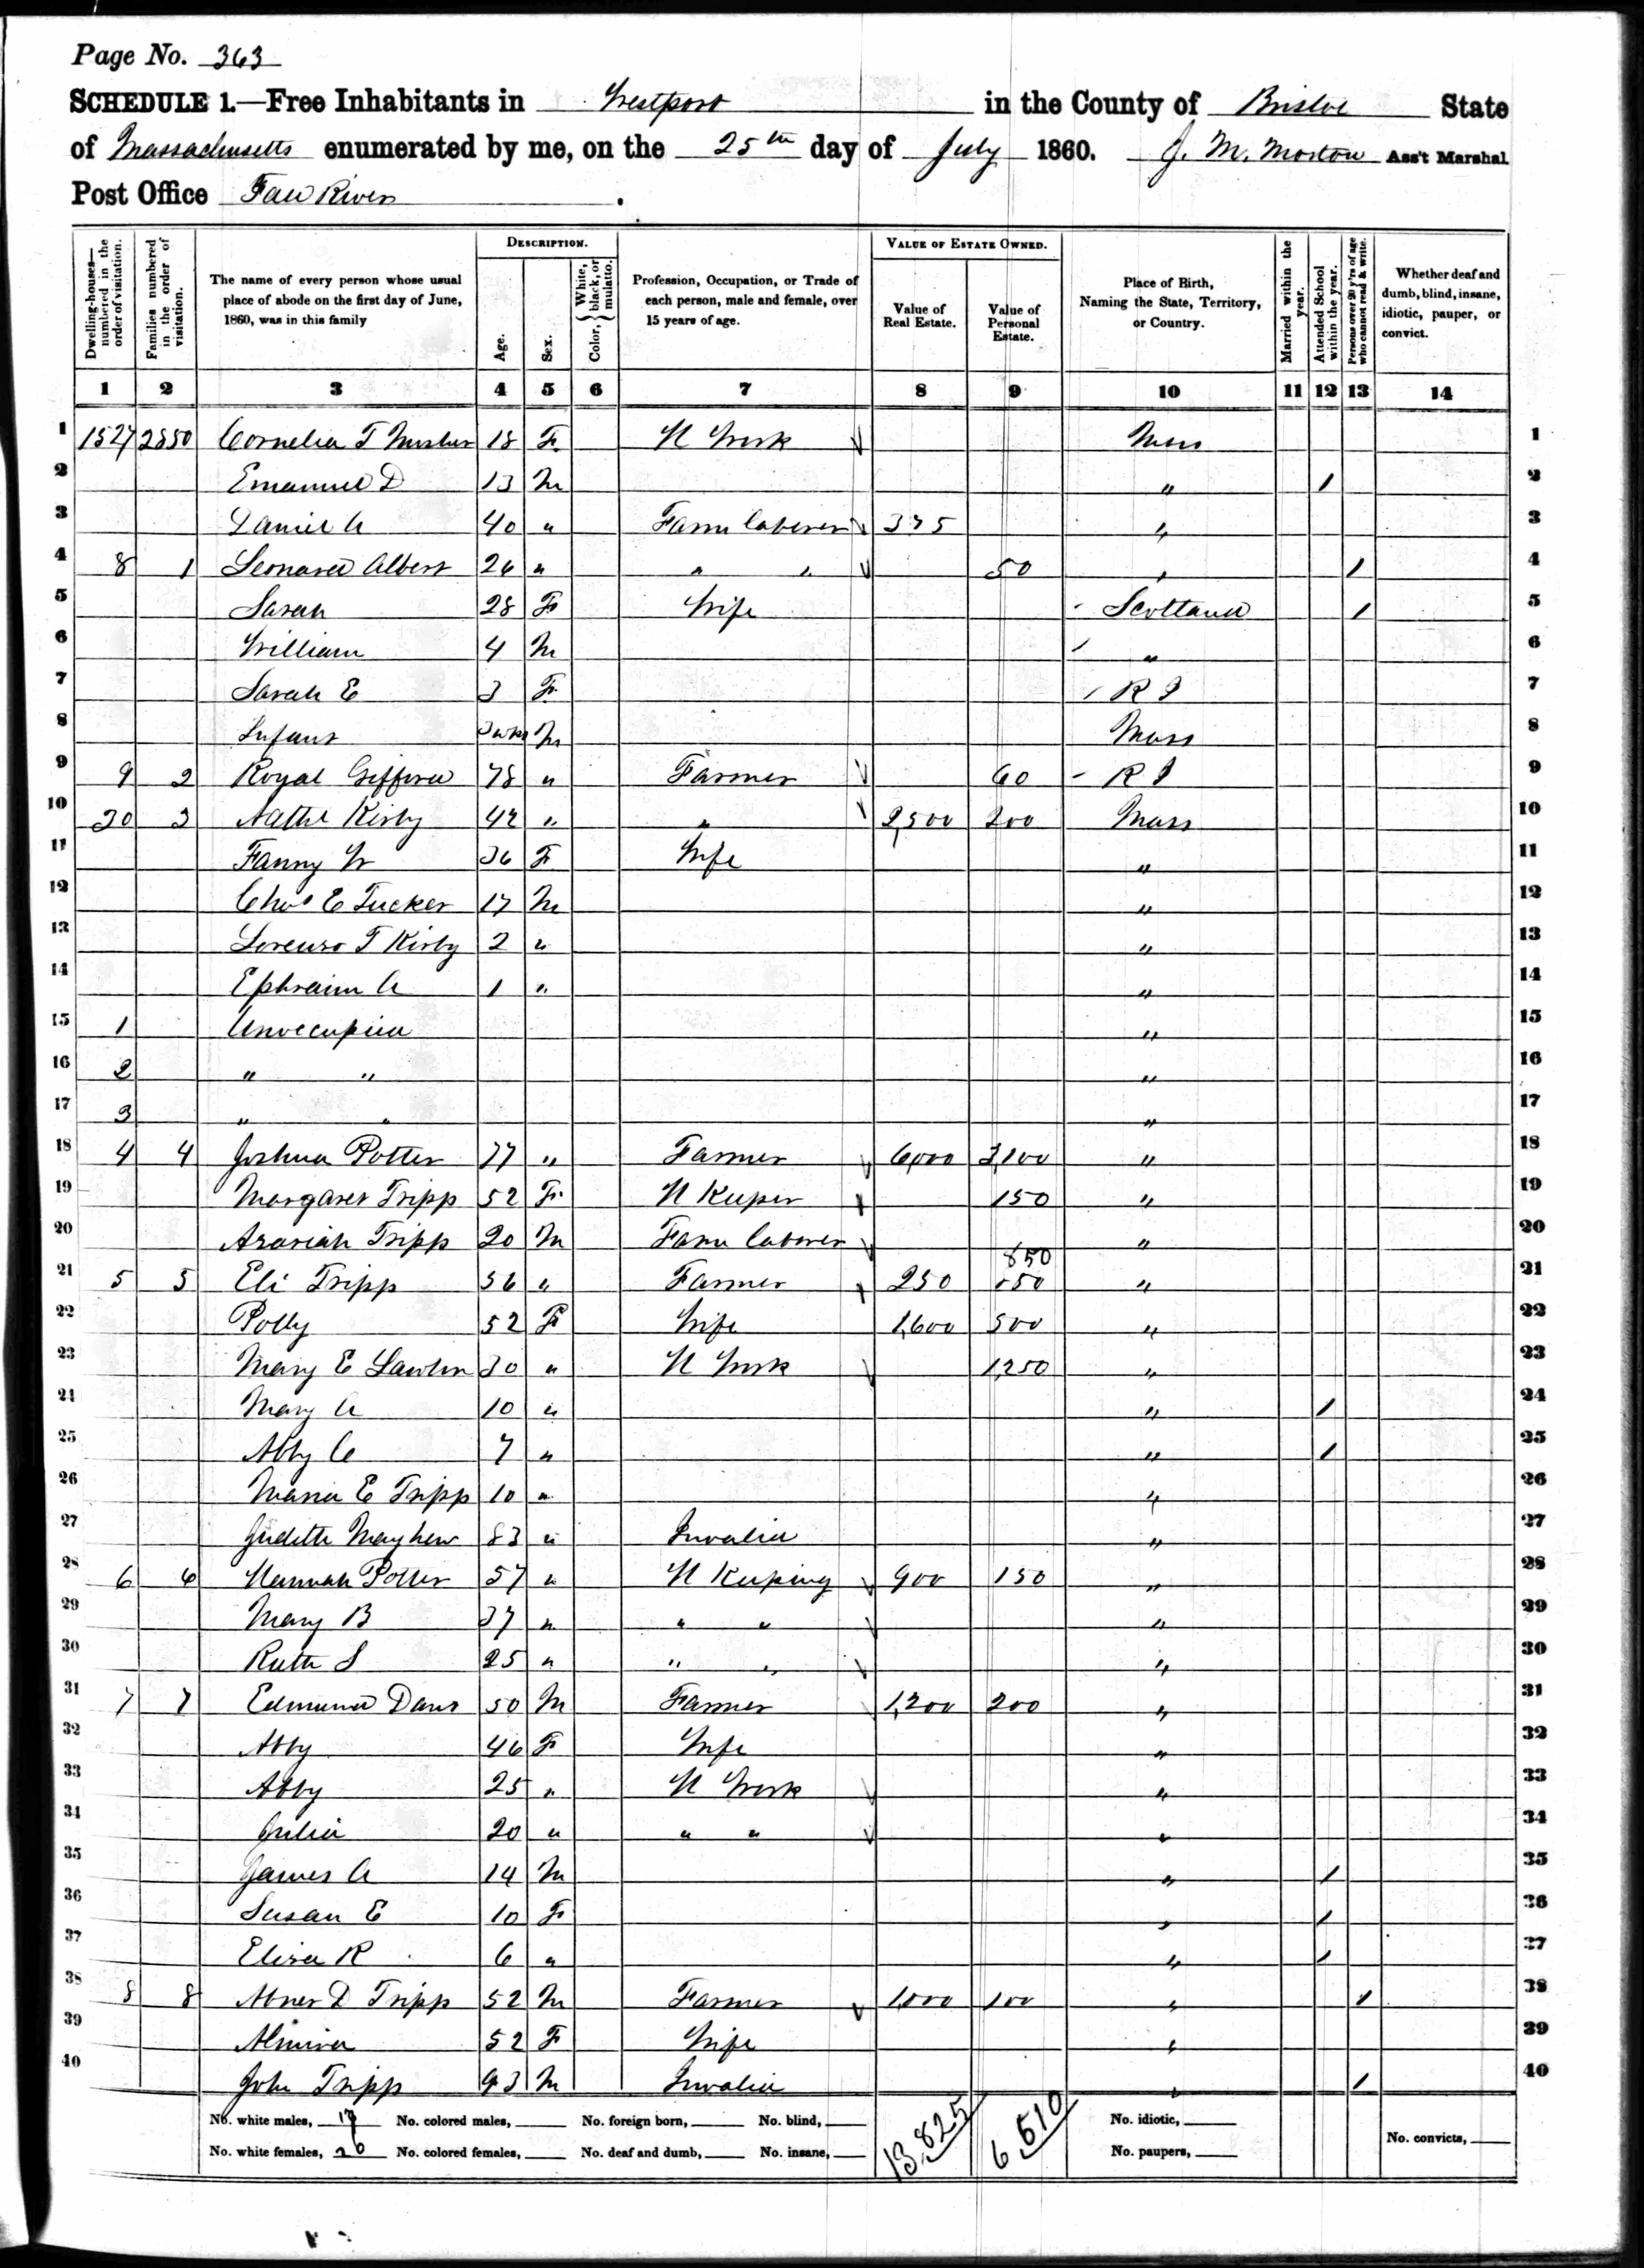 Page No. 363
SCHEDULE 1.—Free Inhabitants in Westport in the County of Bristol State
of Massachusetts enumerated by me, on the 25th day of July 1860. J. M. Morton Ass't Marshal
Post Office Fall River.
Dwelling-houses—numbered in the order of visitation. Families numbered in the order of visitation. The name of every person whose usual place of abode on the first day of June, 1860, was in this family DESCRIPTION. Age. Sex. Color, { White, black, or mulatto. Profession, Occupation, or Trade of each person, male and female, over 15 years of age. VALUE OF ESTATE OWNED. Value of Real Estate. Value of Personal Estate. Place of Birth, Naming the State, Territory, or Country. Married within the year. Attended School within the year. Persons over 20 y'rs of age who cannot read & write. Whether deaf and dumb, blind, insane, idiotic, pauper, or convict.
1 2 3 4 5 6 7 8 9 10 11 12 13 14
1 1527 2550 Cornelia T 18 F H Work Mass 1
2 Emanuel D 13 M " / 2
3 Daniel A 40 " Farm laborer 375 " 3
4 8 1 Leonard Albert 26 " " " 50 " / 4
5 Sarah 28 F Wife Scotland / 5
6 William 4 M " 6
7 Sarah E 3 F R I 7
8 Infant 3 wks M Mass 8
9 9 2 Royal Gifford 78 " Farmer 60 R I 9
10 30 3 Nathl Kirby 42 " " 2,500 200 Mass 10
11 Fanny W 36 F Wife " 11
12 Chas E Tucker 17 M " 12
13 Lorenzo T Kirby 2 " " 13
14 Ephraim A 1 " " 14
15 1 Unoccupied " 15
16 2 " " " 16
17 3 " " " 17
18 4 4 Joshua Potter 77 " Farmer 6,000 3,100 " 18
19 Margaret Tripp 52 F H Keeper 150 " 19
20 Azariah Tripp 20 M Farm laborer " 20
850
21 5 5 Eli Tripp 56 " Farmer 250 850 " 21
22 Polly 52 F Wife 1,600 500 " 22
23 Mary E Lawton 30 " H Work 1,250 " 23
24 Mary A 10 " " / 24
25 Abby C 7 " " / 25
26 Maria E Tripp 10 " " 26
27 Judith Mayhew 83 " Invalid " 27
28 6 6 Hannah Potter 57 " H Keeping 900 150 " 28
29 Mary B 37 " " " " 29
30 Ruth S 25 " " " " 30
31 7 7 Edmund Davis 50 M Farmer 1,200 200 " 31
32 Abby 46 F Wife " 32
33 Abby 25 " H Work " 33
34 Julia 20 " " " " 34
35 James A 14 M " / 35
36 Susan E 10 F " / 36
37 Eliza R 6 " " / 37
38 8 8 Abner D Tripp 52 M Farmer 1,000 100 " / 38
39 Almira 52 F Wife " 39
40 John Tripp 93 M Invalid " / 40
No. white males, 17 No. colored males, No. foreign born, No. blind, 13,825 6,510 No. idiotic,
No. white females, 20 No. colored females, No. deaf and dumb, No. insane, No. paupers, No. convicts,